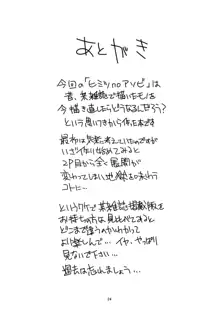 あとがき
今回の「ヒミツnoアソビ」は
昔、某雑誌で描いたモノを
今描き直したらどうなるに思う?
という思いつきから作った本です
最初は気楽に考えていたのですが
いざ作り始めてみると
2P目から全く展開が
変わってしまい地獄を味わう
コトに…
というワケで某雑誌掲載版を
お持ちの方は見比べてみると
どこまで違うのかわかって
より楽しんで… イヤ、やっぱり
見ないで下さい…
過去は忘れましょう…